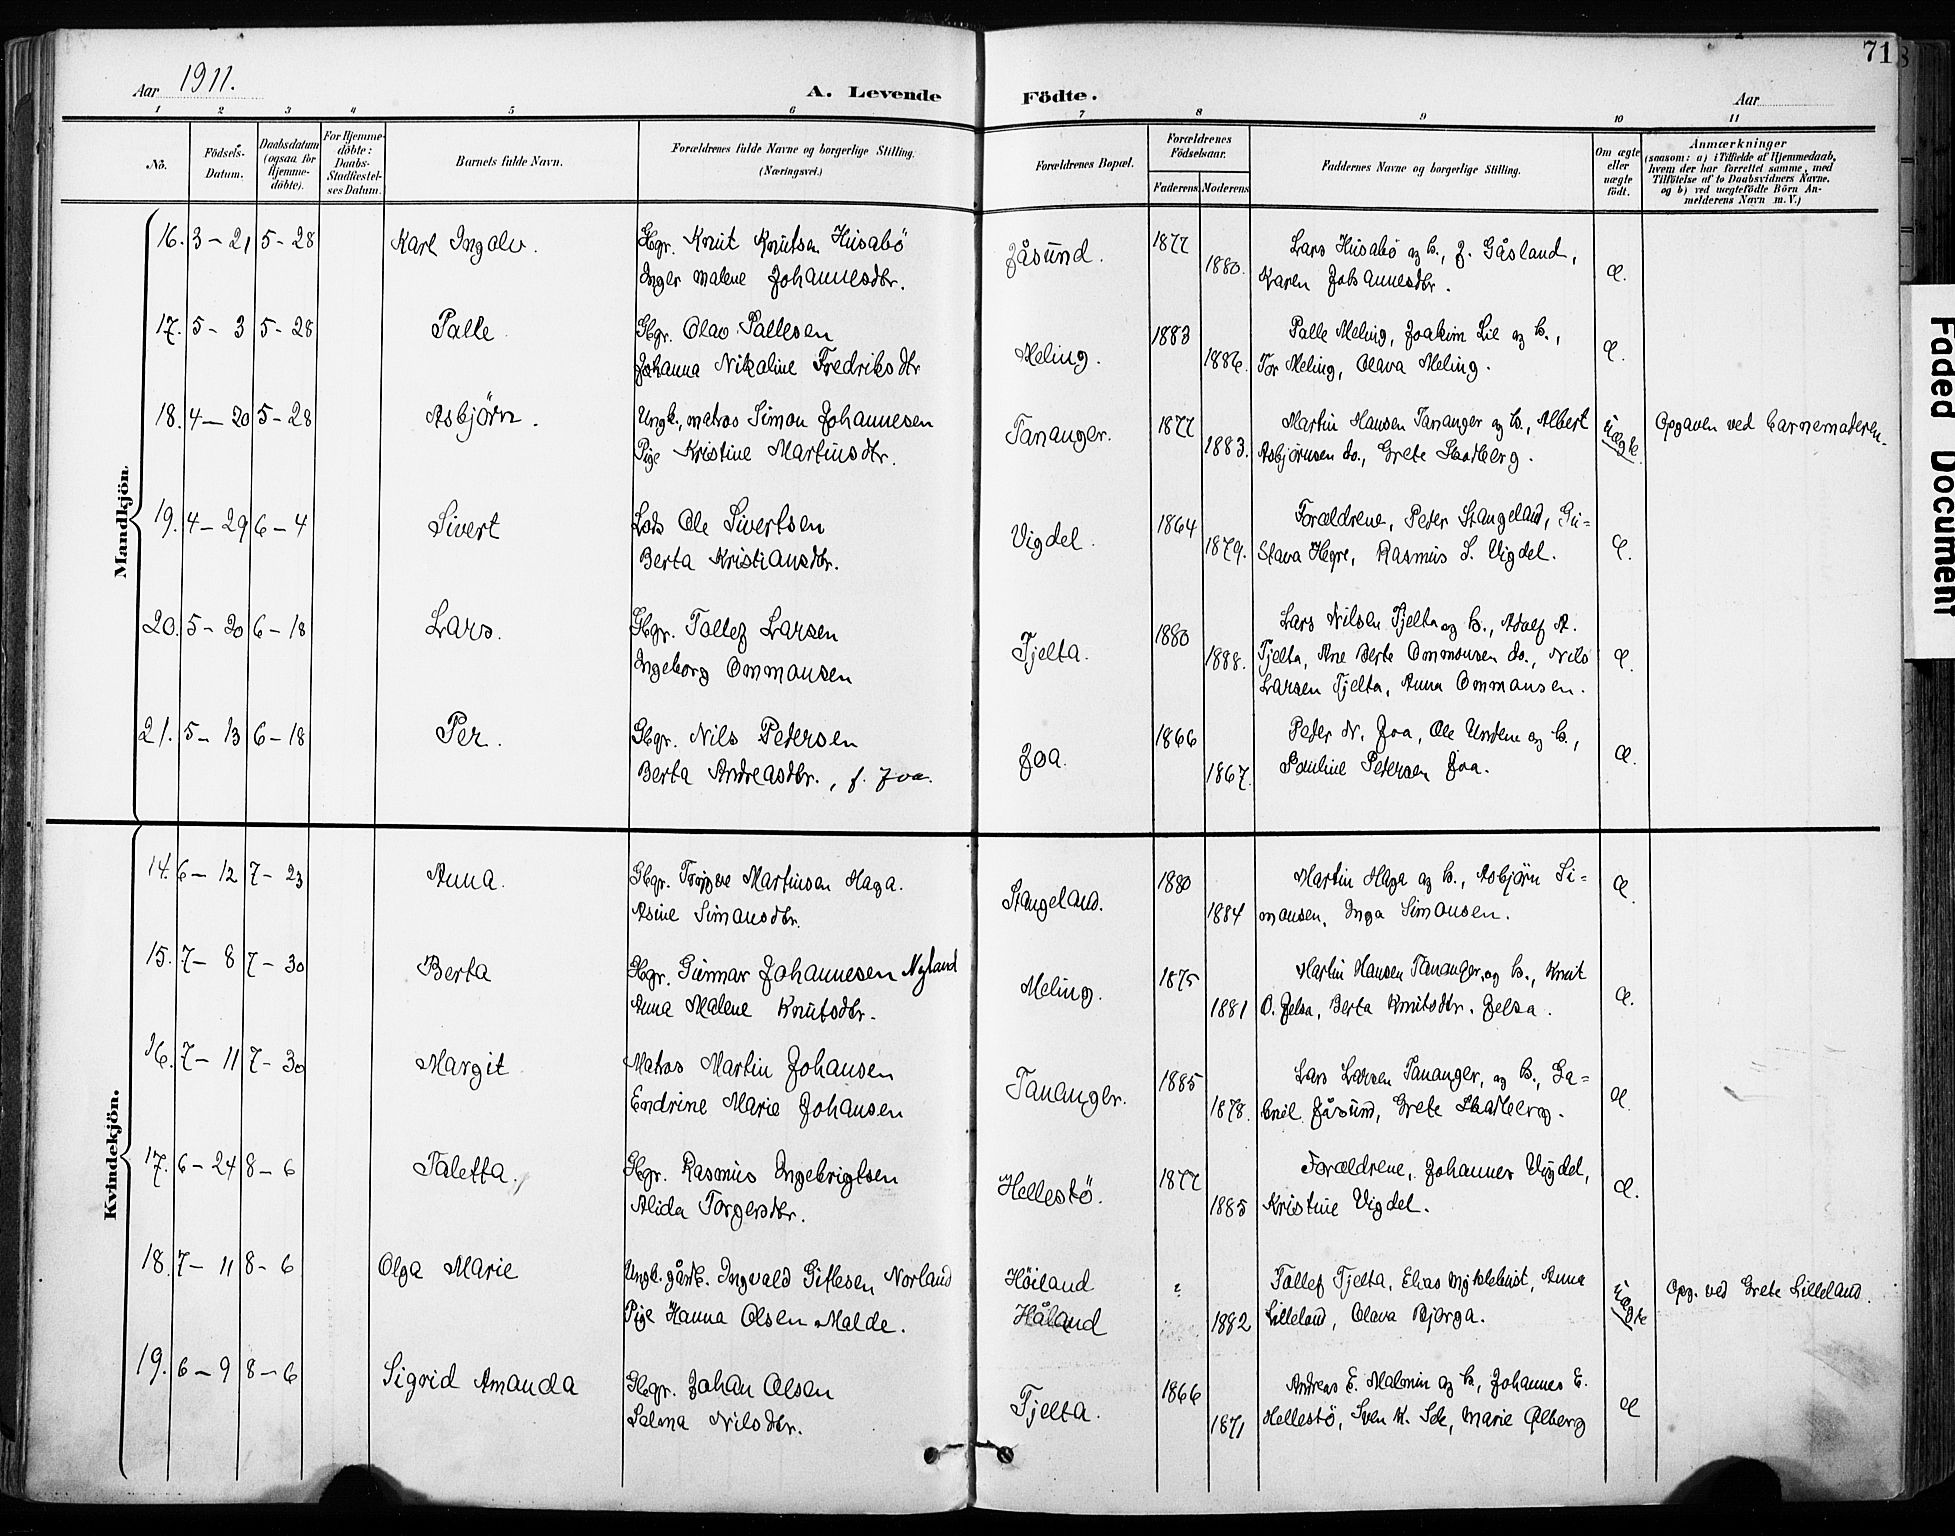 Aar 1911.
A. Levende Födte.
Aar
71
1 2 3 4 5 6 7 8 9 10 11
No.
Födsels-Datum.
Daabsdatum (ogsaa for Hjemme-döbte).
For Hjemme-döbte: Daabs-Stadfæstel-ses Datum.
Barnets fulde Navn.
Forældrenes fulde Navne og borgerlige Stilling. (Næringsvei.)
Forældrenes Bopæl.
Forældrenes Födselsaar.
Faderens Moderens
Faddernes Navne og borgerlige Stilling.
Om ægte eller uægte födt.
Anmærkninger
(saasom: a) i Tilfælde af Hjemmedaab, hvem der har forrettet samme, med Tilföielse af to Daabsvidners Navne, og b) ved uægtefödte Börn An-melderens Navn m. V.)
Mandkjön.
16. 3 - 21 5 - 28 Karl Ingolv. Gbgr. Knut Knutsen Husabö Jåsund. 1877 Lars Husabö og h., J. Gåsland,
Inger Malene Johannesdtr. 1880. Karen Johannesdtr. Æ.
17. 5 - 3 5 - 28 Palle Gbgr. Olav Pallesen Meling. 1883 Palle Meling, Joakim Lie og h.,
Johanna Nikaline Fredriksdtr 1886. Tor Meling, Olava Meling. Æ.
18. 4 - 20 5 - 28 Asbjörn. Ungk., matros Simon Johannesen Tananger. 1877 Martin Hansen Tananger og h., Albert uægte Opgaven ved Barnemoderen.
Pige Kristine Martinsdtr. 1883. Asbjörnsen do., Grete Skadberg.
19. 4 - 29 6 - 4 Sivert Lods Ole Sivertsen Vigdel. 1864 Forældrene, Peter Stangeland, Gu=
Berta Kristiansdtr. 1879. stava Hegre, Rasmus S. Vigdel. Æ.
20. 5 - 20 6 - 18 Lars. Gbgr. Tollef Larsen Tjelta. 1880 Lars Nilsen Tjelta og h., Adolf A.
Ingeborg Ommonsen 1888. Tjelta, Ane Berte Ommonsen do., Nils Æ.
Larsen Tjelta, Anna Ommonsen.
21. 5 - 13 6 - 18 Per. Gbgr. Nils Petersen Joa. 1866 Peder N. Joa, Ole Undem og h.,
Berta Andreasdtr., f. Joa. 1867. Pauline Petersen Joa. Æ.
Kvindekjön.
14. 6 - 12 7 - 23 Anna. Gbgr. Trygve Martinsen Haga. Stangeland. 1880 Martin Haga og h., Asbjörn Si= Æ.
Asine Simonsdtr. 1884 monsen, Inga Simonsen.
15. 7 - 8 7 - 30 Berta Gbgr. Gunnar Johannesen Nyland Meling. 1875 Martin Hansen Tananger, og h., Knut
Anna Malene Knutsdtr. 1881 O. Jelsa, Berta Knutsdtr. Jelsa. Æ.
16. 7 - 11 7 - 30 Margit Matros Martin Johansen Tananger. 1885 Lars Larsen Tananger, og h., Ga=
Endrine Marie Johansen 1878. briel Jåsund, Grete Skadberg. Æ.
17. 6 - 24 8 - 6 Taletta. Gbgr. Rasmus Ingebrigtsen Hellestö. 1877 Forældrene, Johannes Vigdel,
Alida Torgersdtr. 1885 Kristine Vigdel. Æ.
18. 7 - 11 8 - 6 Olga Marie Ungk. gårdb. Ingvald Gitlesen Norland Höiland Tollef Tjelta, Elias Myklebust, Anna uægte Opg. ved Grete Lilleland.
Pige Hanna Olsen Malde. Håland 1882 Lilleland, Olava Bjorga.
19. 6 - 9 8 - 6 Sigrid Amanda Gbgr. Johan Olsen Tjelta. 1866 Andreas E. Malmin og h., Johannes E.
Salma Nilsdtr. 1871 Hellestö, Sven K. Sele, Marie Ölberg Æ
Faded Document